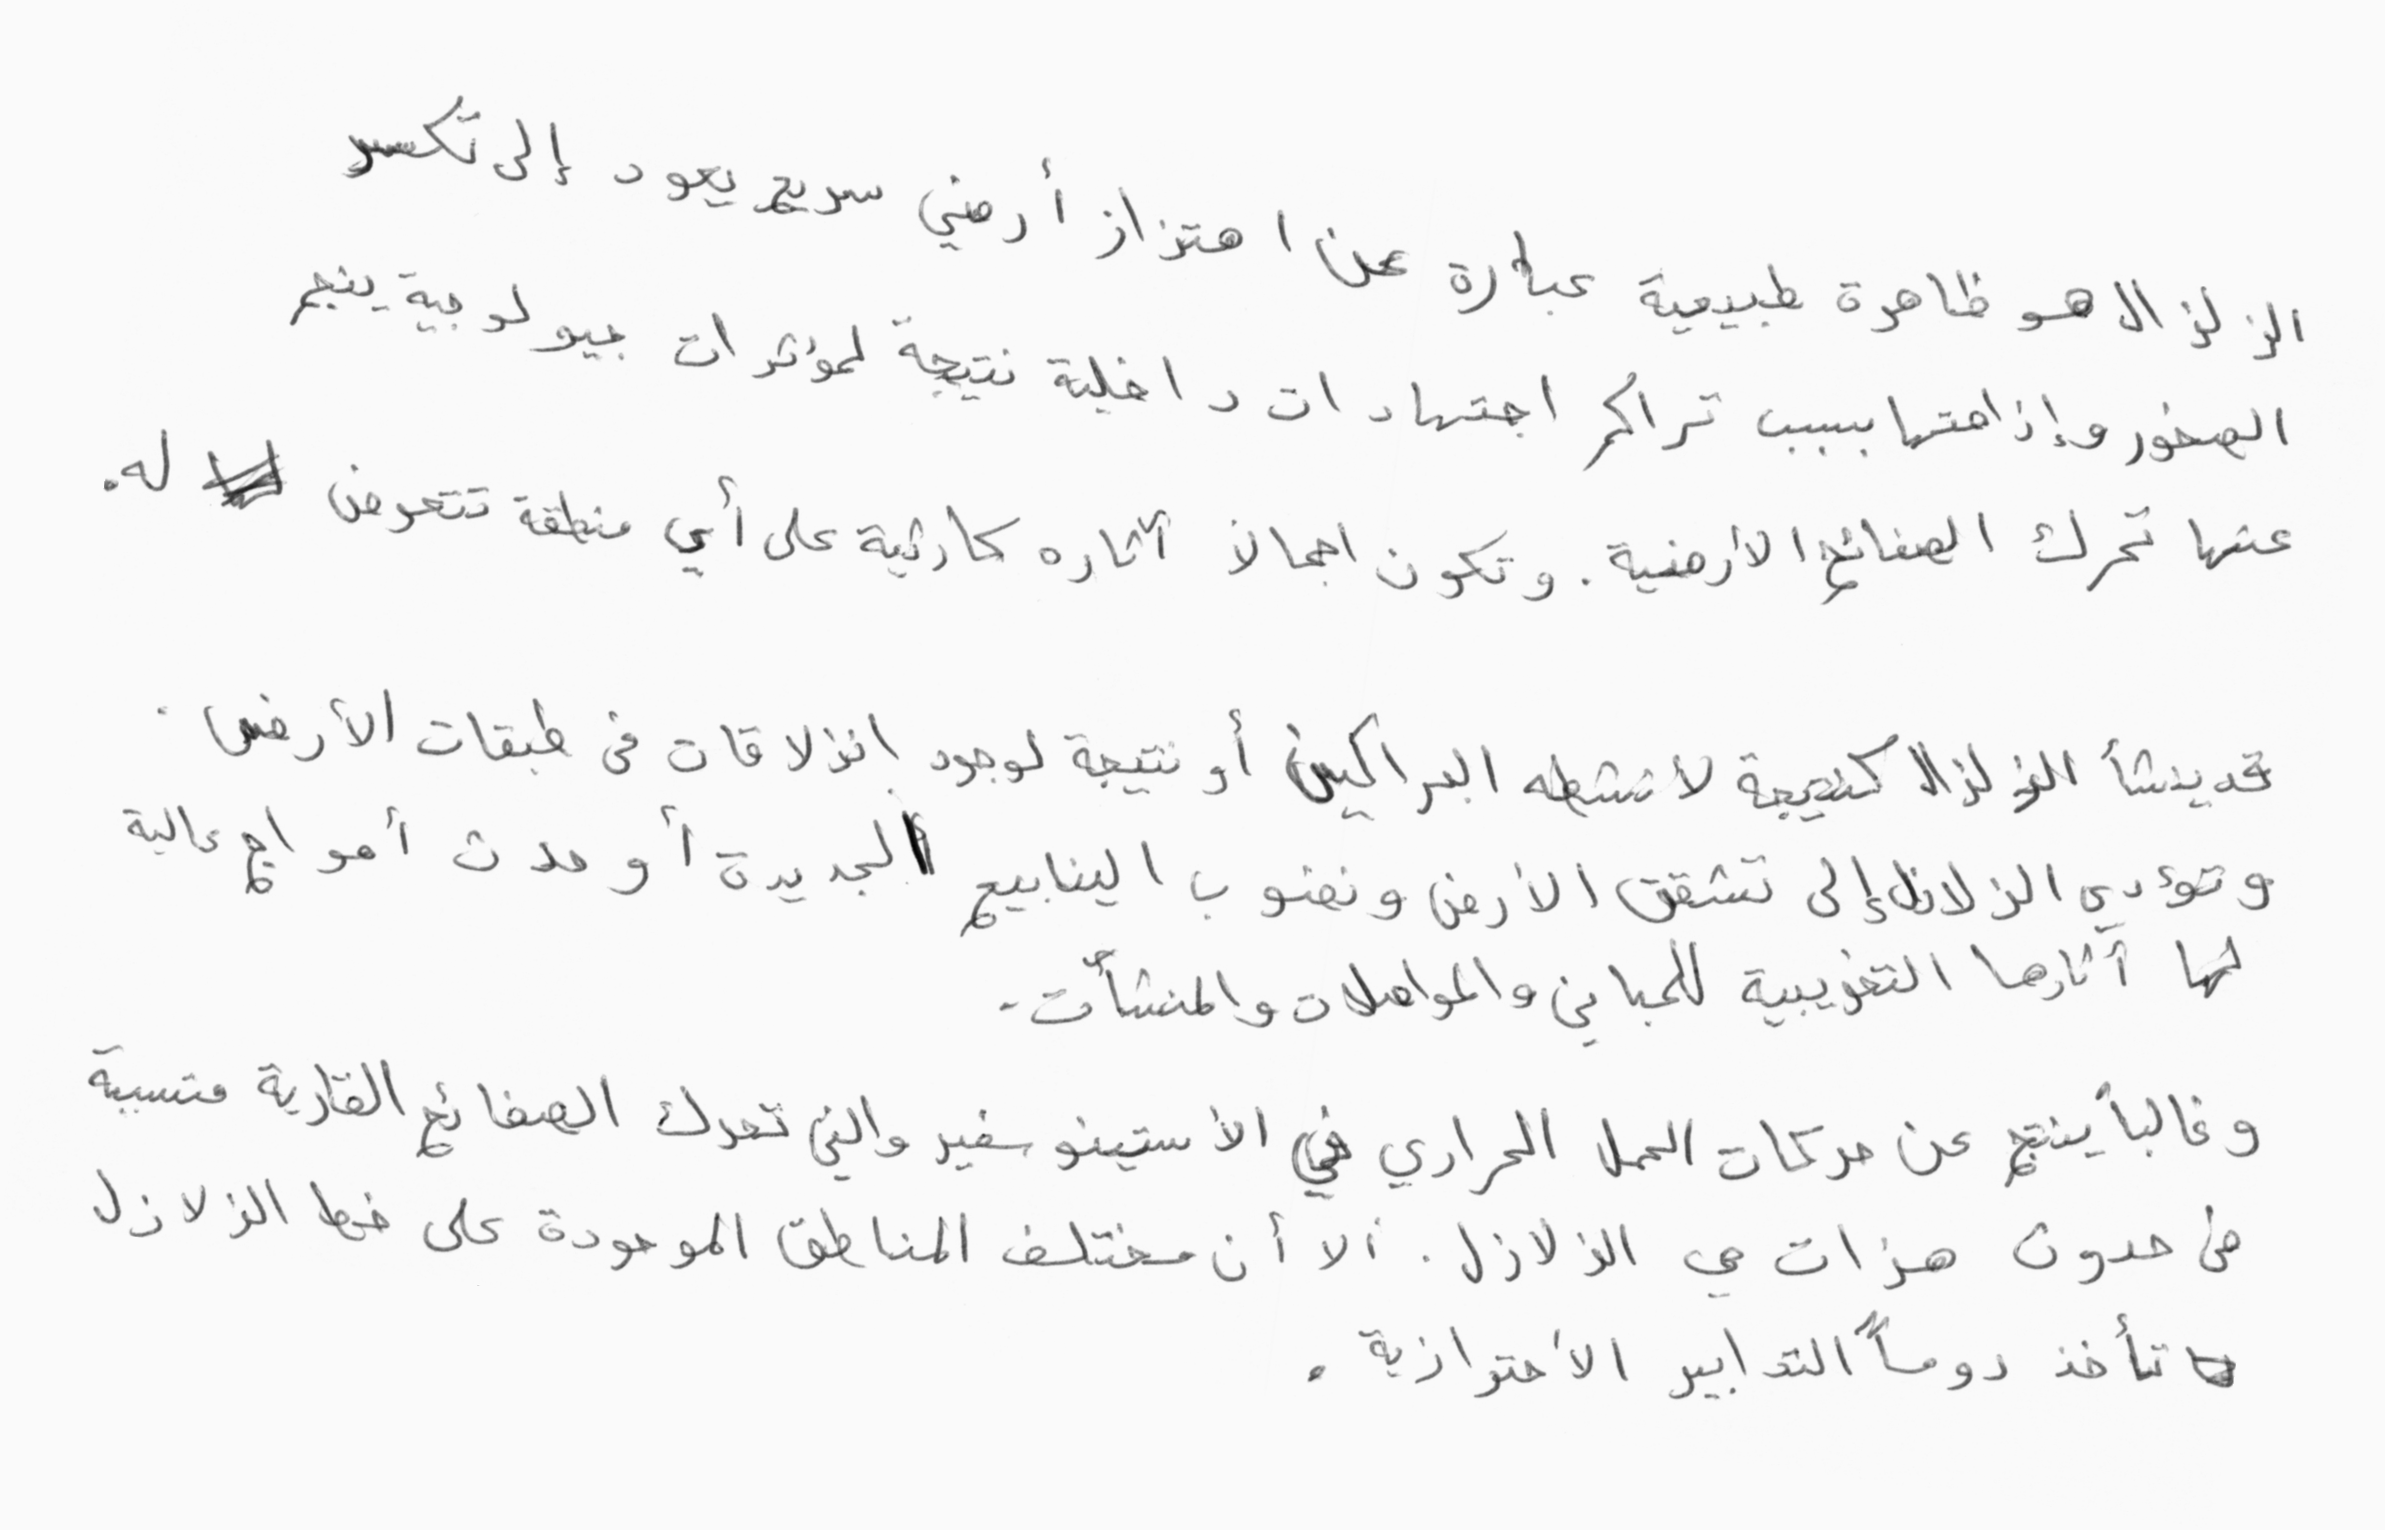 الزلزال هو ظاهرة طبيعية عبارة عن اهتزاز أرضي سريع يعود إلى تكسر
الصخور وإزاحتها بسبب تراكم اجتهادات داخلية نتيجة لمؤثرات جيولوجية ينجم
عنها تحرك الصفائح الأرضية. وتكون اجمالاً آثاره كارثية على أي منطقة تتعرض له.
قد ينشأ الزلزال كنتيجة لأنشطه البراكين أو نتيجة لوجود انزلاقات في طبقات الأرض.
وتؤدي الزلازل إلى تشقق الأرض ونضوب الينابيع الجديدة أو حدث أمواج عالية
لها آثارها التخريبية للمباني والمواصلات والمنشآت.
وغالباً ينتج عن حركات الحمل الحراري في الأستينوسفير والتي تحرك الصفائح القارية متسببة
في حدوث هزات هي الزلازل. ألا أن مختلف المناطق الموجودة على خط الزلازل
تأخذ دوماً التدابير الأحترازية.